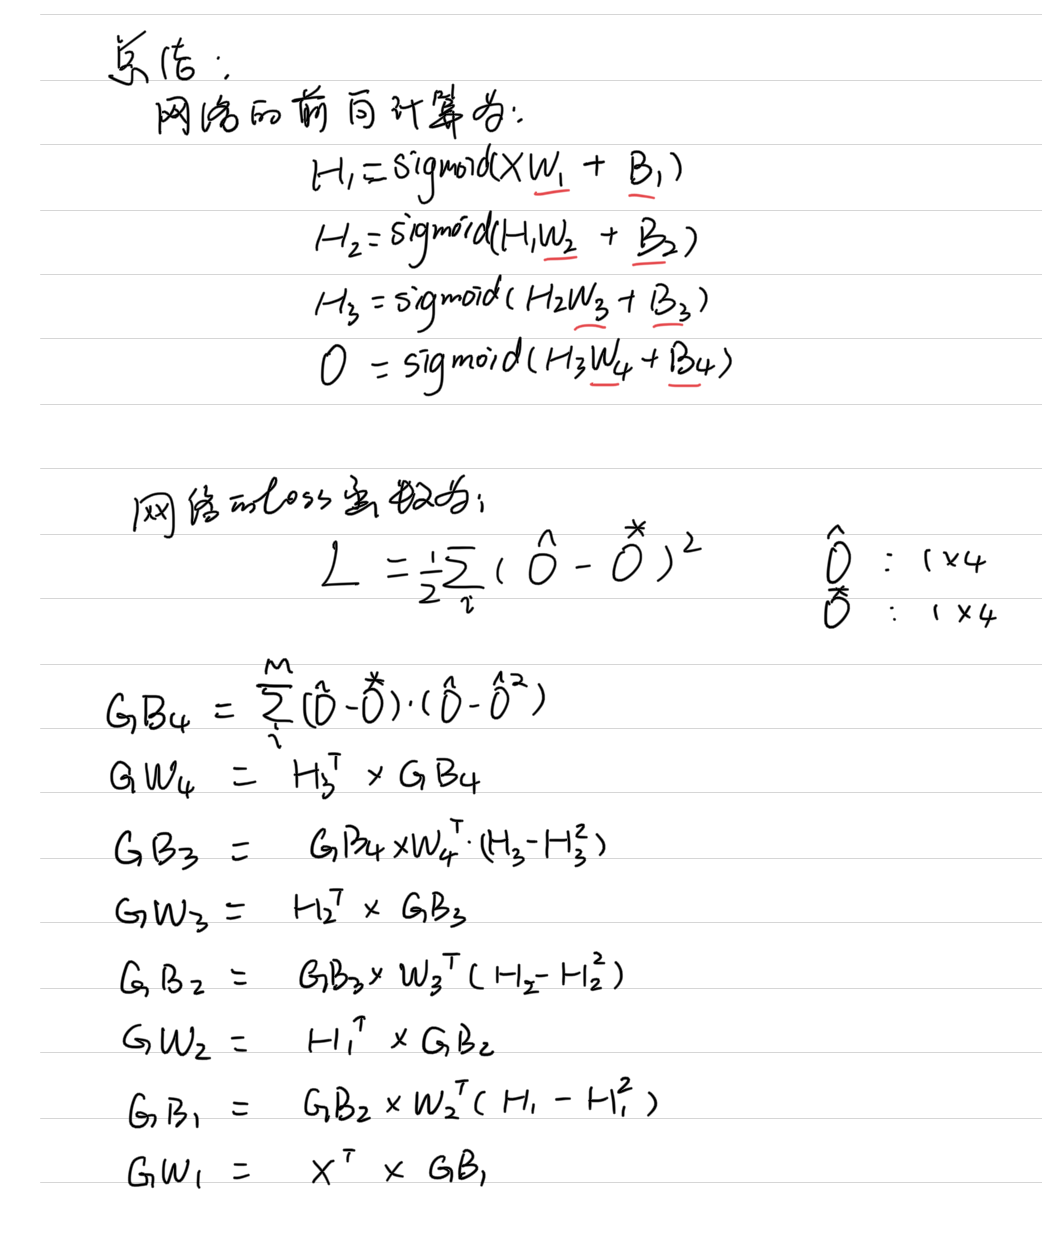 总结:
网络的前向计算为:
H₁=sigmoid(XW₁ + B₁)
H₂=sigmoid(H₁W₂ + B₂)
H₃=sigmoid(H₂W₃+B₃)
O = sigmoid(H₃W₄+B₄)
网络的loss函数为:
L = 1/2 Σᵢ (Ô - O*)² Ô : 1×4
O* : 1×4
GB₄ = Σᵢᴹ (Ô-O*)·(Ô-Ô²)
GW₄ = H₃ᵀ × GB₄
GB₃ = GB₄×W₄ᵀ·(H₃-H₃²)
GW₃ = H₂ᵀ × GB₃
GB₂ = GB₃× W₃ᵀ(H₂-H₂²)
GW₂ = H₁ᵀ × GB₂
GB₁ = GB₂×W₂ᵀ(H₁-H₁²)
GW₁ = Xᵀ × GB₁